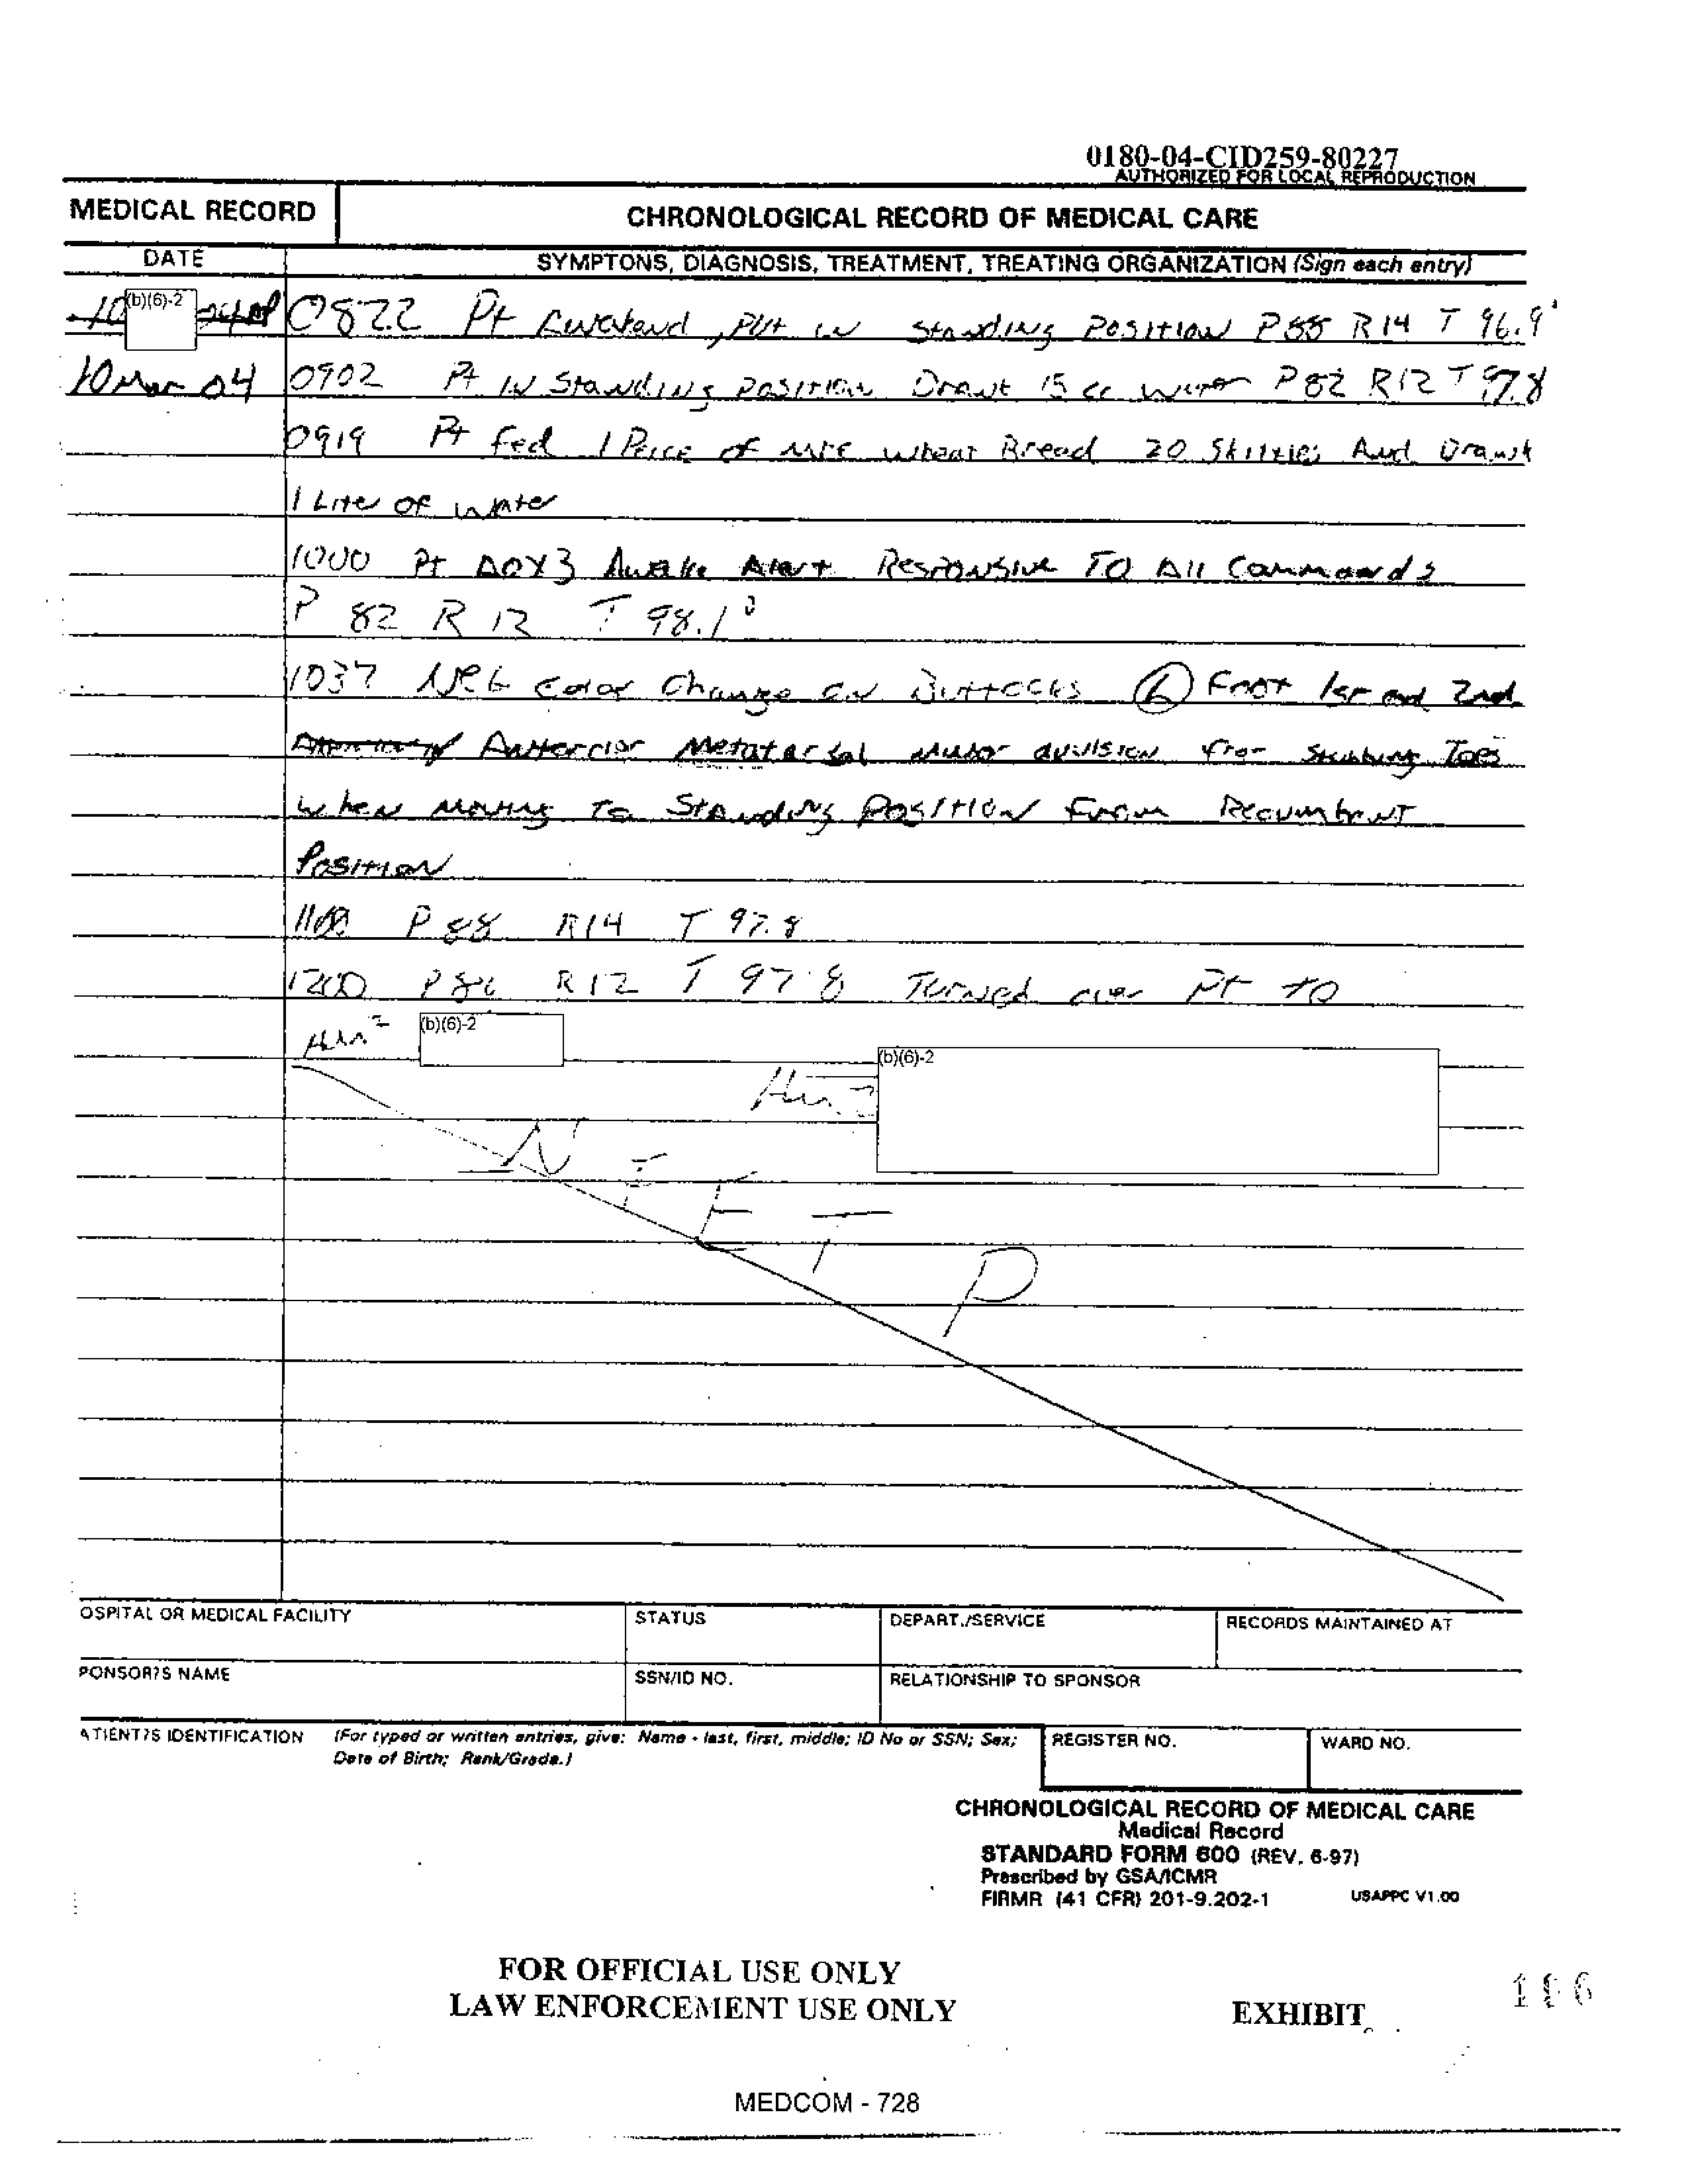 0180-04-CID259-80227
AUTHORIZED FOR LOCAL REPRODUCTION
MEDICAL RECORD
CHRONOLOGICAL RECORD OF MEDICAL CARE
DATE
SYMPTONS, DIAGNOSIS, TREATMENT, TREATING ORGANIZATION (Sign each entry)
10 (b)(6)-2 0822 Pt , Put in Standing Position P88 R14 T 96.9°
10 Mar 04 0902 Pt IN Standing Position Drank 15 cc water P82 R12 T 97.8
0919 Pt Fed 1 Peice of MRE wheat Bread 20 Skittles And Drank
1 Liter of water
1000 Pt AOX3 Awake Alert Responsive To All Commands
P 82 R 12 T 98.1°
1037 NEG Color Change on Buttocks (L) Foot 1st and 2nd
Antercior Metatarsal minor avulsion from Stubbing Toes
when moving To Standing Position From Recumbent
Position
1100 P 88 R14 T 97.8
1200 P 86 R12 T 97.8 Turned over Pt to
(b)(6)-2
(b)(6)-2
P
OSPITAL OR MEDICAL FACILITY
STATUS
DEPART./SERVICE
RECORDS MAINTAINED AT
PONSOR?S NAME
SSN/ID NO.
RELATIONSHIP TO SPONSOR
ATIENT?S IDENTIFICATION
(For typed or written entries, give: Name - last, first, middle; ID No or SSN; Sex;
Date of Birth; Rank/Grade.)
REGISTER NO.
WARD NO.
CHRONOLOGICAL RECORD OF MEDICAL CARE
Medical Record
STANDARD FORM 600 (REV. 6-97)
Prescribed by GSA/ICMR
FIRMR (41 CFR) 201-9.202-1
USAPPC V1.00
FOR OFFICIAL USE ONLY
LAW ENFORCEMENT USE ONLY
EXHIBIT
MEDCOM - 728